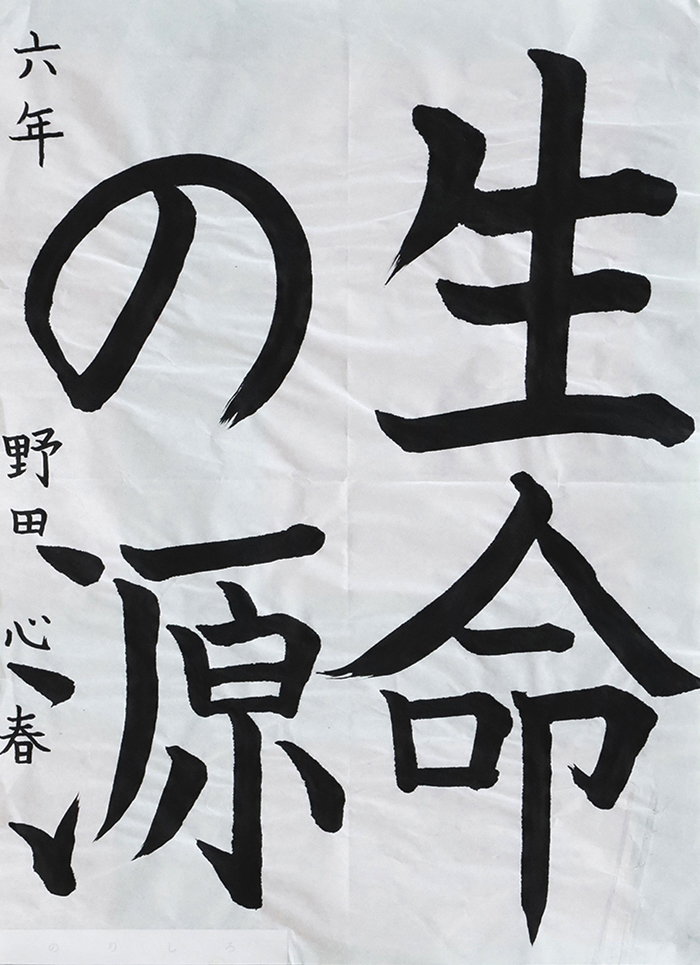 生命
の源
六年 野田 心春
のりしろ